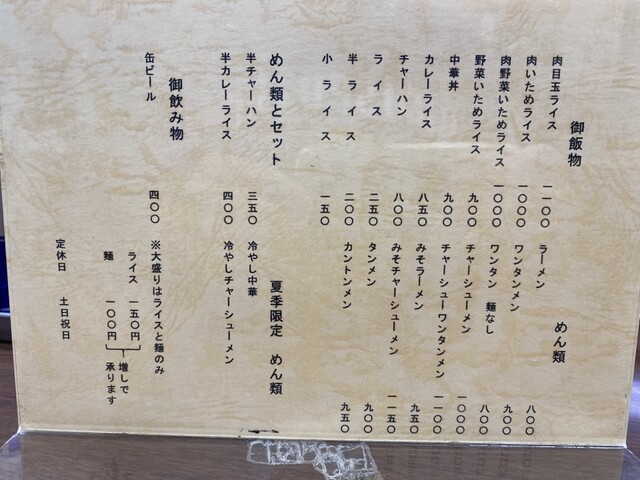 御飯物
肉目玉ライス 一一〇〇
肉いためライス 一〇〇〇
肉野菜いためライス 一〇〇〇
野菜いためライス 九〇〇
中華丼 九〇〇
カレーライス 八五〇
チャーハン 八〇〇
ライス 二五〇
半ライス 二〇〇
小ライス 一五〇
めん類とセット
半チャーハン 三五〇
半カレーライス 四〇〇
御飲み物
缶ビール 四〇〇
めん類
ラーメン 八〇〇
ワンタンメン 九〇〇
ワンタン 麺なし 八〇〇
チャーシューメン 一〇〇〇
チャーシューワンタンメン 一一〇〇
みそラーメン 九五〇
みそチャーシューメン 一一五〇
タンメン 九〇〇
カントンメン 九五〇
夏季限定 めん類
冷やし中華
冷やしチャーシューメン
※大盛りはライスと麺のみ
ライス 一五〇円
麺 一〇〇円
増しで
承ります
定休日 土日祝日